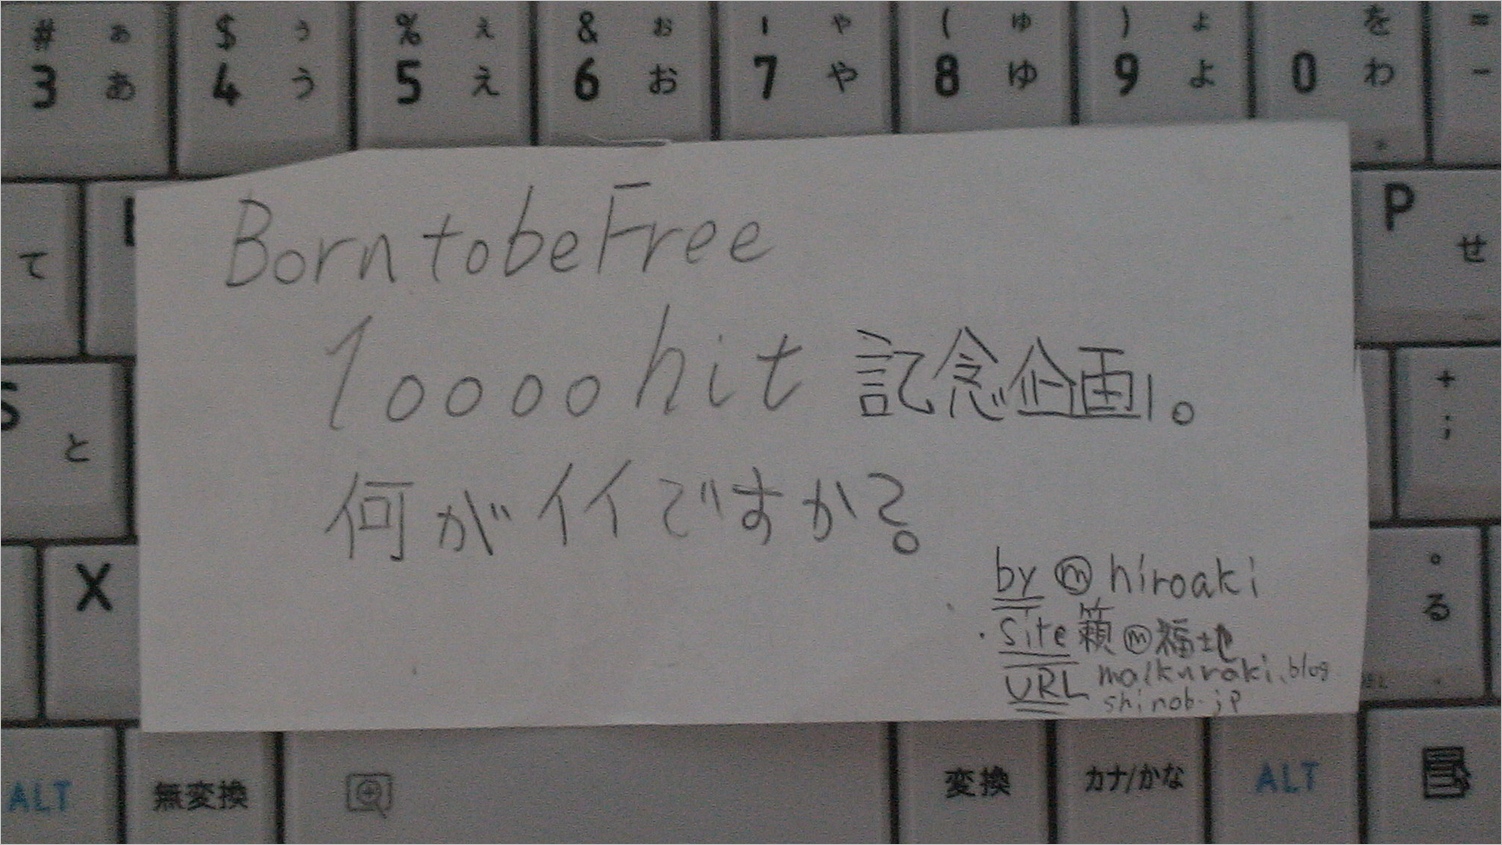 # ぁ $ ぅ % ぇ & ぉ ' ゃ ( ゅ ) ょ を =
3 あ 4 う 5 え 6 お 7 や 8 ゆ 9 よ 0 わ -
て P せ
Born to be Free
10000hit 記念企画。
S と + ;
何がイイですか?
X 。 る
by ⓜ hiroaki
・site 籟ⓜ福地
URL maikuraki.blog
shinob.jp
ALT 無変換 変換 カナ/かな ALT